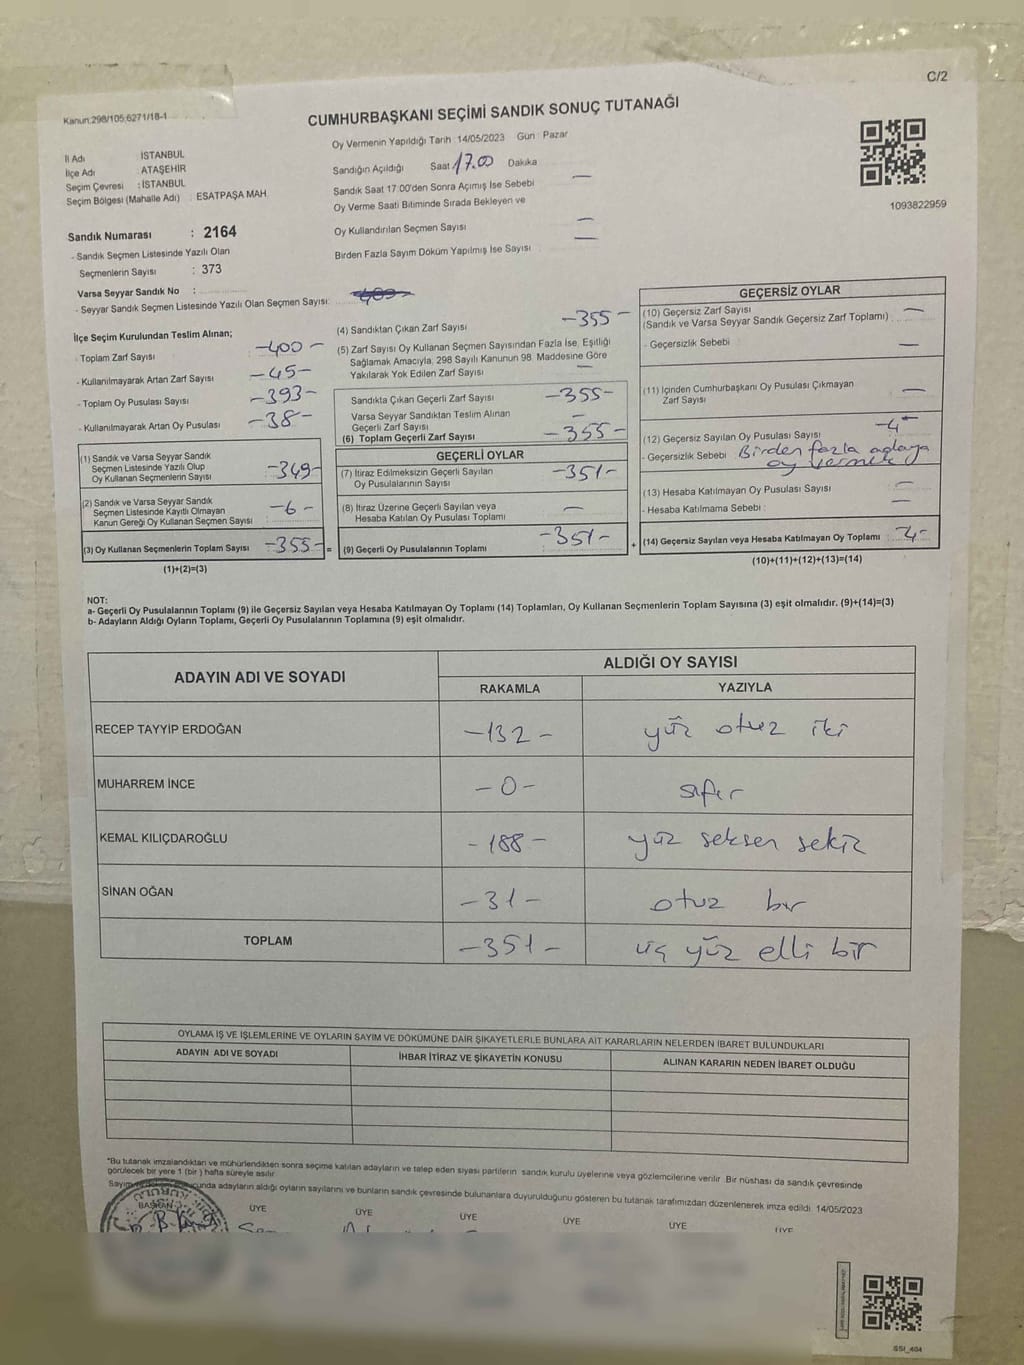 C/2
Kanun:298/105;6271/18-1
CUMHURBAŞKANI SEÇİMİ SANDIK SONUÇ TUTANAĞI
İl Adı : İSTANBUL
İlçe Adı : ATAŞEHİR
Seçim Çevresi : İSTANBUL
Seçim Bölgesi (Mahalle Adı) : ESATPAŞA MAH.
Sandık Numarası : 2164
- Sandık Seçmen Listesinde Yazılı Olan
Seçmenlerin Sayısı : 373
Varsa Seyyar Sandık No :
- Seyyar Sandık Seçmen Listesinde Yazılı Olan Seçmen Sayısı:
Oy Vermenin Yapıldığı Tarih : 14/05/2023 Gün : Pazar
Sandığın Açıldığı Saat 17.00 Dakika
Sandık Saat 17:00'den Sonra Açımış İse Sebebi —
Oy Verme Saati Bitiminde Sırada Bekleyen ve
Oy Kullandırılan Seçmen Sayısı —
Birden Fazla Sayım Döküm Yapılmış İse Sayısı —
1093822959
İlçe Seçim Kurulundan Teslim Alınan;
- Toplam Zarf Sayısı -400-
- Kullanılmayarak Artan Zarf Sayısı -45-
- Toplam Oy Pusulası Sayısı -393-
- Kullanılmayarak Artan Oy Pusulası -38-
(1) Sandık ve Varsa Seyyar Sandık
Seçmen Listesinde Yazılı Olup
Oy Kullanan Seçmenlerin Sayısı -349-
(2) Sandık ve Varsa Seyyar Sandık
Seçmen Listesinde Kayıtlı Olmayan
Kanun Gereği Oy Kullanan Seçmen Sayısı -6-
(3) Oy Kullanan Seçmenlerin Toplam Sayısı -355- =
(1)+(2)=(3)
(4) Sandıktan Çıkan Zarf Sayısı -355-
(5) Zarf Sayısı Oy Kullanan Seçmen Sayısından Fazla İse, Eşitliği
Sağlamak Amacıyla, 298 Sayılı Kanunun 98. Maddesine Göre
Yakılarak Yok Edilen Zarf Sayısı —
Sandıkta Çıkan Geçerli Zarf Sayısı -355-
Varsa Seyyar Sandıktan Teslim Alınan
Geçerli Zarf Sayısı —
(6) Toplam Geçerli Zarf Sayısı -355-
GEÇERLİ OYLAR
(7) İtiraz Edilmeksizin Geçerli Sayılan
Oy Pusulalarının Sayısı -351-
(8) İtiraz Üzerine Geçerli Sayılan veya
Hesaba Katılan Oy Pusulası Toplamı —
(9) Geçerli Oy Pusulalarının Toplamı -351- +
GEÇERSİZ OYLAR
(10) Geçersiz Zarf Sayısı
(Sandık ve Varsa Seyyar Sandık Geçersiz Zarf Toplamı) —
- Geçersizlik Sebebi : —
(11) İçinden Cumhurbaşkanı Oy Pusulası Çıkmayan
Zarf Sayısı —
(12) Geçersiz Sayılan Oy Pusulası Sayısı -4-
- Geçersizlik Sebebi : Birden fazla adaya
oy vermek
(13) Hesaba Katılmayan Oy Pusulası Sayısı —
- Hesaba Katılmama Sebebi : —
(14) Geçersiz Sayılan veya Hesaba Katılmayan Oy Toplamı : 4-
(10)+(11)+(12)+(13)=(14)
NOT:
a- Geçerli Oy Pusulalarının Toplamı (9) ile Geçersiz Sayılan veya Hesaba Katılmayan Oy Toplamı (14) Toplamları, Oy Kullanan Seçmenlerin Toplam Sayısına (3) eşit olmalıdır. (9)+(14)=(3)
b- Adayların Aldığı Oyların Toplamı, Geçerli Oy Pusulalarının Toplamına (9) eşit olmalıdır.
ADAYIN ADI VE SOYADI
ALDIĞI OY SAYISI
RAKAMLA YAZIYLA
RECEP TAYYİP ERDOĞAN -132- yüz otuz iki
MUHARREM İNCE -0- sıfır
KEMAL KILIÇDAROĞLU -188- yüz seksen sekiz
SİNAN OĞAN -31- otuz bir
TOPLAM -351- üç yüz elli bir
OYLAMA İŞ VE İŞLEMLERİNE VE OYLARIN SAYIM VE DÖKÜMÜNE DAİR ŞİKAYETLERLE BUNLARA AİT KARARLARIN NELERDEN İBARET BULUNDUKLARI
ADAYIN ADI VE SOYADI İHBAR İTİRAZ VE ŞİKAYETİN KONUSU ALINAN KARARIN NEDEN İBARET OLDUĞU
*Bu tutanak imzalandıktan ve mühürlendikten sonra seçime katılan adayların ve talep eden siyasi partilerin sandık kurulu üyelerine veya gözlemcilerine verilir. Bir nüshası da sandık çevresinde
görülecek bir yere 1 (bir ) hafta süreyle asılır.
adayların aldığı oyların sayılarını ve bunların sandık çevresinde bulunanlara duyurulduğunu gösteren bu tutanak tarafımızdan düzenlenerek imza edildi. 14/05/2023
BAŞKAN ÜYE ÜYE ÜYE ÜYE ÜYE ÜYE
SSI_404